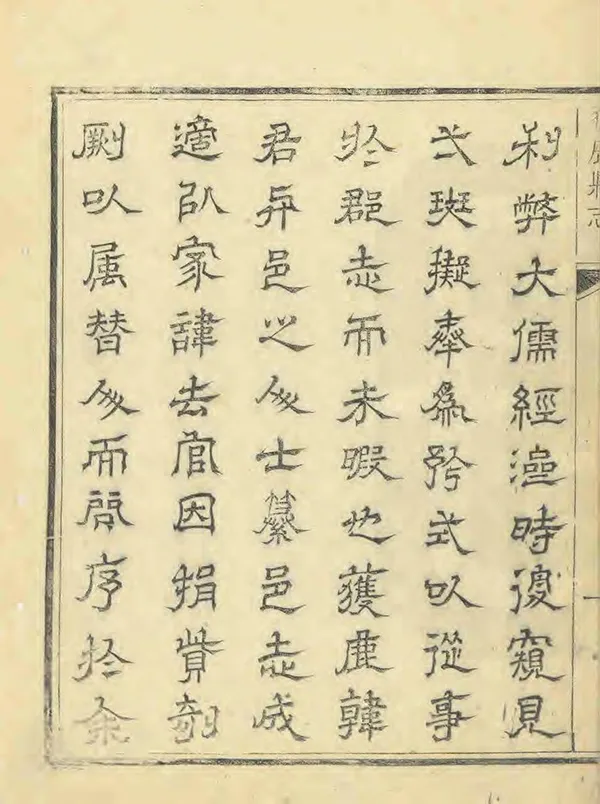 利弊大儒經濟時復窺見
弌斑擬奉為矜式以從事
於郡志而未暇也獲鹿韓
君與邑之人士纂邑志成
適以家諱去官因捐貲剞
劂以属替人而問序於余
縣志